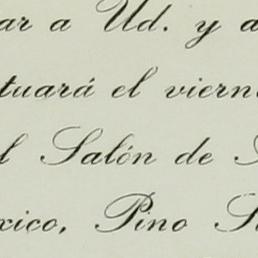 ar a Ud. y a
tuará el viern
l Salón de
xico, Pino S